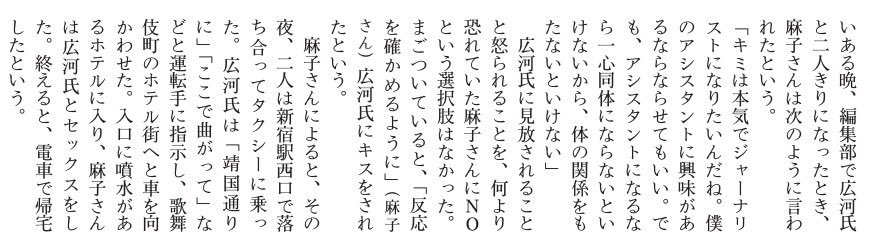 いある晩、編集部で広河氏
と二人きりになったとき、
麻子さんは次のように言わ
れたという。
「キミは本気でジャーナリ
ストになりたいんだね。僕
のアシスタントに興味があ
るならならせてもいい。で
も、アシスタントになるな
ら一心同体にならないとい
けないから、体の関係をも
たないといけない」
広河氏に見放されること
と怒られることを、何より
恐れていた麻子さんにNO
という選択肢はなかった。
まごついていると、「反応
を確かめるように」（麻子
さん）広河氏にキスをされ
たという。
麻子さんによると、その
夜、二人は新宿駅西口で落
ち合ってタクシーに乗っ
た。広河氏は「靖国通り
に」「ここで曲がって」な
どと運転手に指示し、歌舞
伎町のホテル街へと車を向
かわせた。入口に噴水があ
るホテルに入り、麻子さん
は広河氏とセックスをし
た。終えると、電車で帰宅
したという。